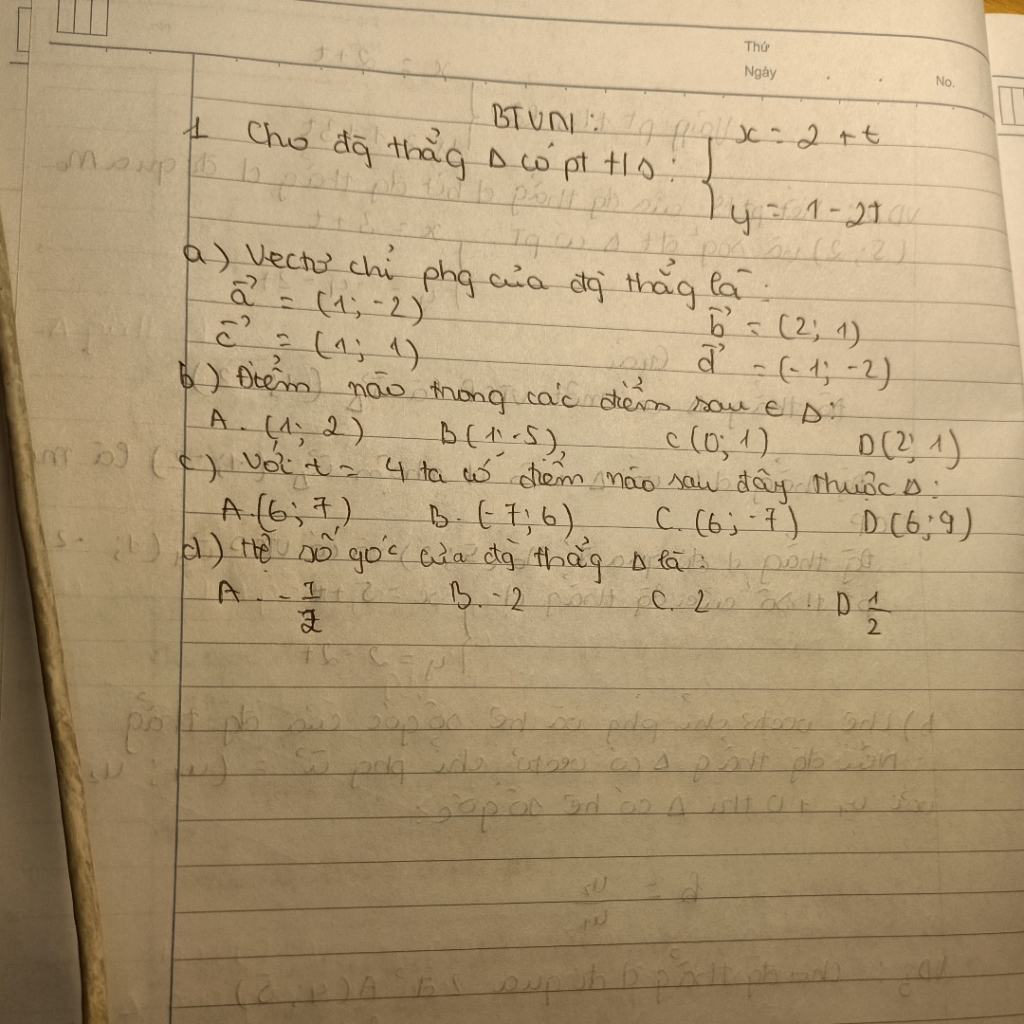 Thứ
Ngày . . No.
BTVN:
1 Cho đg thẳg Δ có pt t/s: { x = 2 + t
y = 1 - 2t
a) Vectơ chỉ phg của đg thẳg là:
a⃗ = (1; -2) b⃗ = (2; 1)
c⃗ = (1; 1) d⃗ = (-1; -2)
b) Điểm nào trong các điểm sau ∈ Δ:
A. (1; 2) B(1; -5), C(0; 1) D(2; 1)
c) Với t = 4 ta có điểm nào sau đây thuộc Δ:
A.(6; 7) B. (-7; 6) C. (6; -7) D(6; 9)
d) Hệ số góc của đg thẳg Δ là:
A. -1/2 B. -2 C. 2 D 1/2